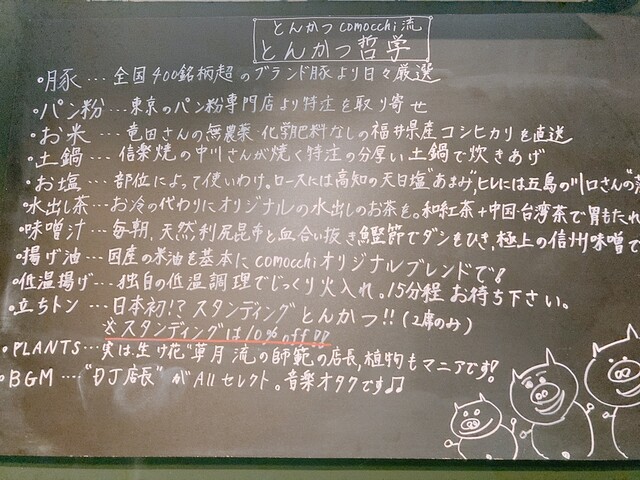 とんかつ comocchi流
とんかつ哲学
・豚…全国400銘柄超のブランド豚より日々厳選
・パン粉…東京のパン粉専門店より特注を取り寄せ
・お米…竜田さんの無農薬・化学肥料なしの福井県産コシヒカリを直送
・土鍋…信楽焼の中川さんが焼く特注の分厚い土鍋で炊きあげ
・お塩…部位によって使いわけ。ロースには高知の天日塩"あまみ"、ヒレには五島の川口さんの
・水出し茶…お冷の代わりにオリジナルの水出しのお茶を。和紅茶+中国台湾茶で胃もたれ
・味噌汁…毎朝、天然利尻昆布と血合い抜き鰹節でダシをひき、極上の信州味噌で
・揚げ油…国産の米油を基本にcomocchiオリジナルブレンドで!
・低温揚げ…独自の低温調理でじっくり火入れ。15分程お待ち下さい。
・立ちトン…日本初!?スタンディングとんかつ!!(2席のみ)
※スタンディングは10% off!!
・PLANTS…実は、生け花"草月流の師範の店長、植物もマニアです!
・BGM…"DJ店長"がAllセレクト。音楽オタクです♫